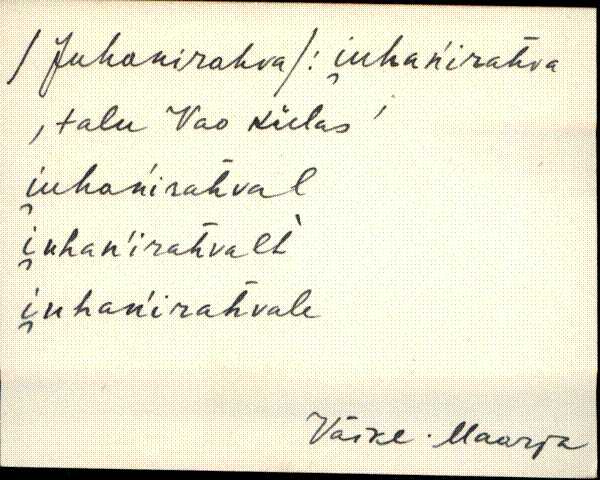 /Juhanirahva/: i̯uhańirah̄va
‚talu Vao külas’
i̯uhańirah̄val
i̯uhańirah̄valt̀
i̯uhańirah̄vale
Väike-Maarja